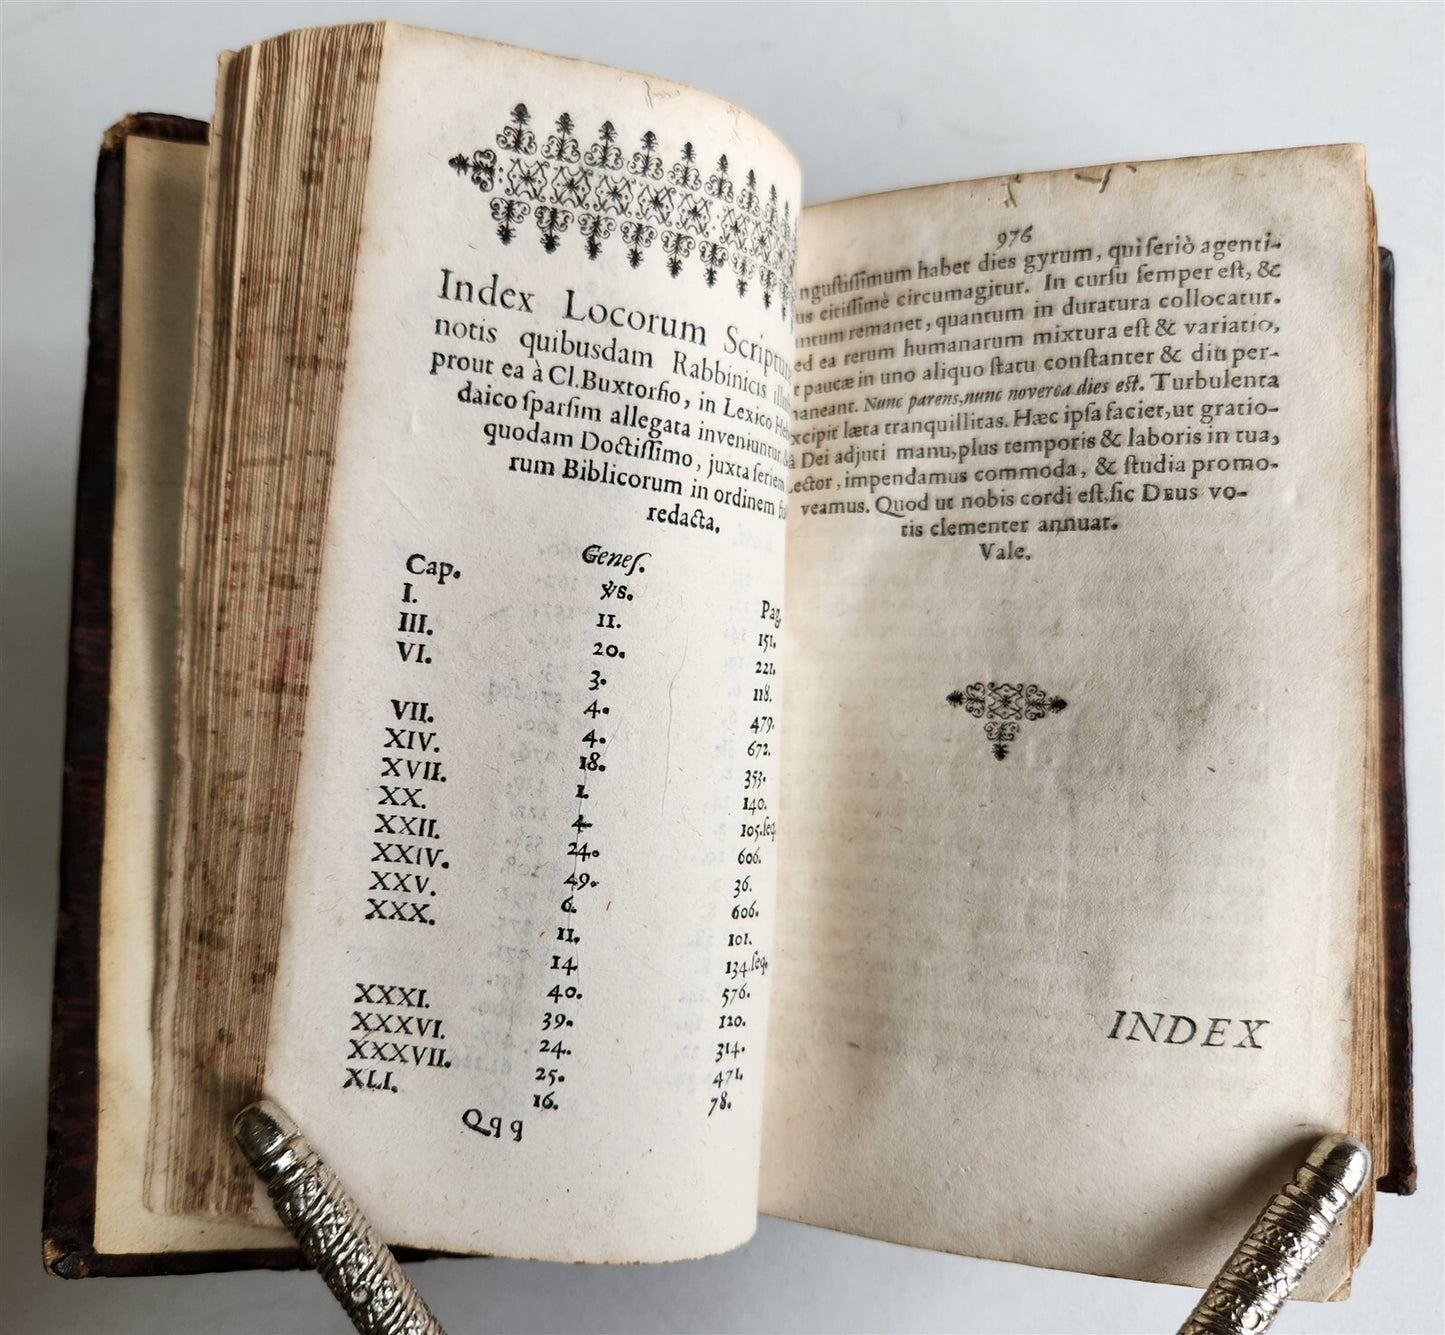 Index Locorum Scriptur
notis quibusdam Rabbinicis illu
prout ea à Cl. Buxtorfio, in Lexico He
daico ſparſim allegata inveniuntur,
quodam Doctiſſimo, juxta ſeriem
rum Biblicorum in ordinem
redacta.
Geneſ.
Cap. vs. Pag.
I. 11. 151.
III. 20. 221.
VI. 3. 118.
4. 479.
VII. 4. 672.
XIV. 18. 353.
XVII. 1. 140.
XX. 4. 105. ſeq.
XXII. 24. 606.
XXIV. 49. 36.
XXV. 6. 606.
XXX. 11. 101.
14. 134. ſeq.
40. 576.
XXXI. 39. 120.
XXXVI. 24. 314.
XXXVII. 25. 471.
XLI. 16. 78.
Qqq
976
nguſtiſſimum habet dies gyrum, qui ſeriò agenti-
us citiſſimè circumagitur. In curſu ſemper eſt, &
ntum remanet, quantum in duratura collocatur.
ed ea rerum humanarum mixtura eſt & variatio,
t paucæ in uno aliquo ſtatu conſtanter & diu per-
maneant. Nunc parens, nunc noverca dies eſt. Turbulenta
xcipit læta tranquillitas. Hæc ipſa faciet, ut gratio-
â Dei adjuti manu, plus temporis & laboris in tua,
Lector, impendamus commoda, & ſtudia promo-
veamus. Quod ut nobis cordi eſt, ſic DEUS vo-
tis clementer annuat.
Vale.
INDEX